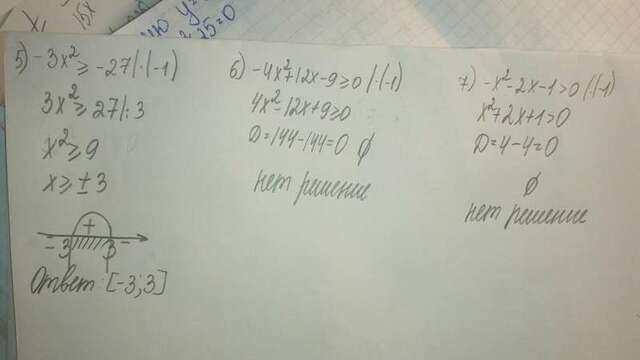 15x
ую у=
25=0
5) -3x²≥-27|·(-1)
3x²≥27|:3
x²≥9
x≥±3
+
-3 3 -
Ответ: [-3;3]
6) -4x²+12x-9≥0|·(-1)
4x²-12x+9≥0
D=144-144=0 ∅
нет решение
7) -x²-2x-1>0|·(-1)
x²+2x+1>0
D=4-4=0
∅
нет решение